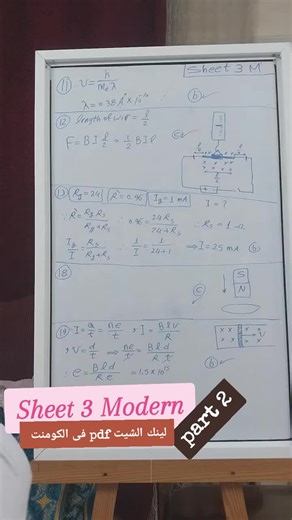 Sheet 3 M
11 V = h / m_e λ
λ = 0.38 A° × 10^-10
b
12 length of wire = l/2
F = B I l/2 = 1/2 B I l
c
13 Rg = 24 R' = 0.96 Ig = 1 mA I = ?
∴ R' = Rg Rs / Rg + Rs ∴ 0.96 = 24 Rs / 24 + Rs ∴ Rs = 1 Ω
Ig / I = Rs / Rg + Rs ∴ 1 / I = 1 / 24 + 1 ⇒ I = 25 mA b
18
S
N
c
19 ∵ I = Q/t = ne/t , I = Blv / R
∵ v = d/t ⇒ ne/t = Bld / R t
∴ e = Bld / R e = 1.5 × 10^15
b
Sheet 3 Modern
لينك الشيت pdf فى الكومنت
part 2